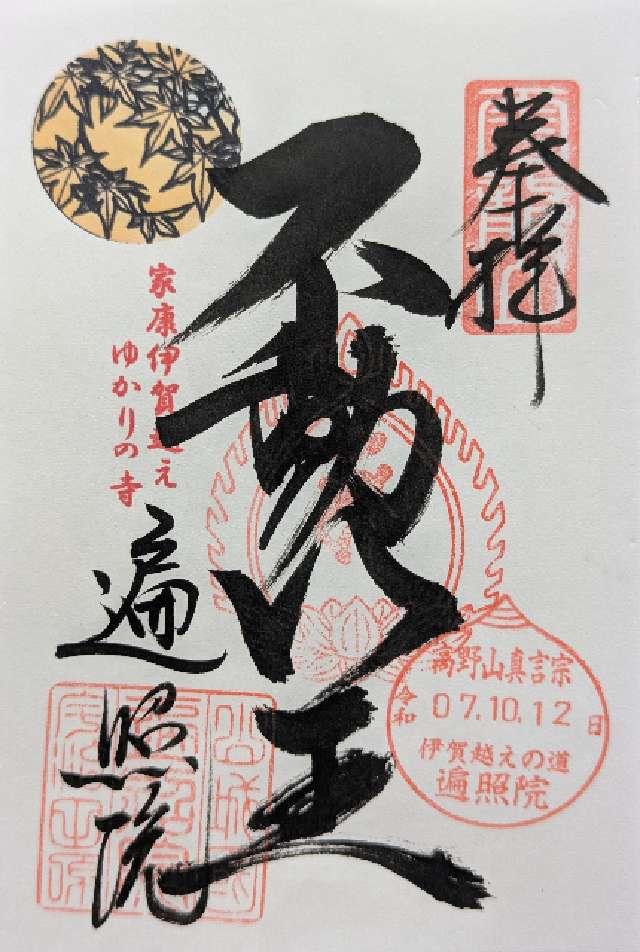 奉拝
不動明王
家康伊賀越え
ゆかりの寺
遍照院
高野山真言宗
令和 07.10.12 日
伊賀越えの道
遍照院